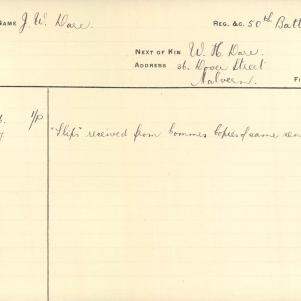 NAME J. W. Dare REG. &C. 50th Batt
NEXT OF KIN W. H. Dare.
ADDRESS 36. Dover Street
Malvern.
1/P "Slips" received from Commes Copies of same sen